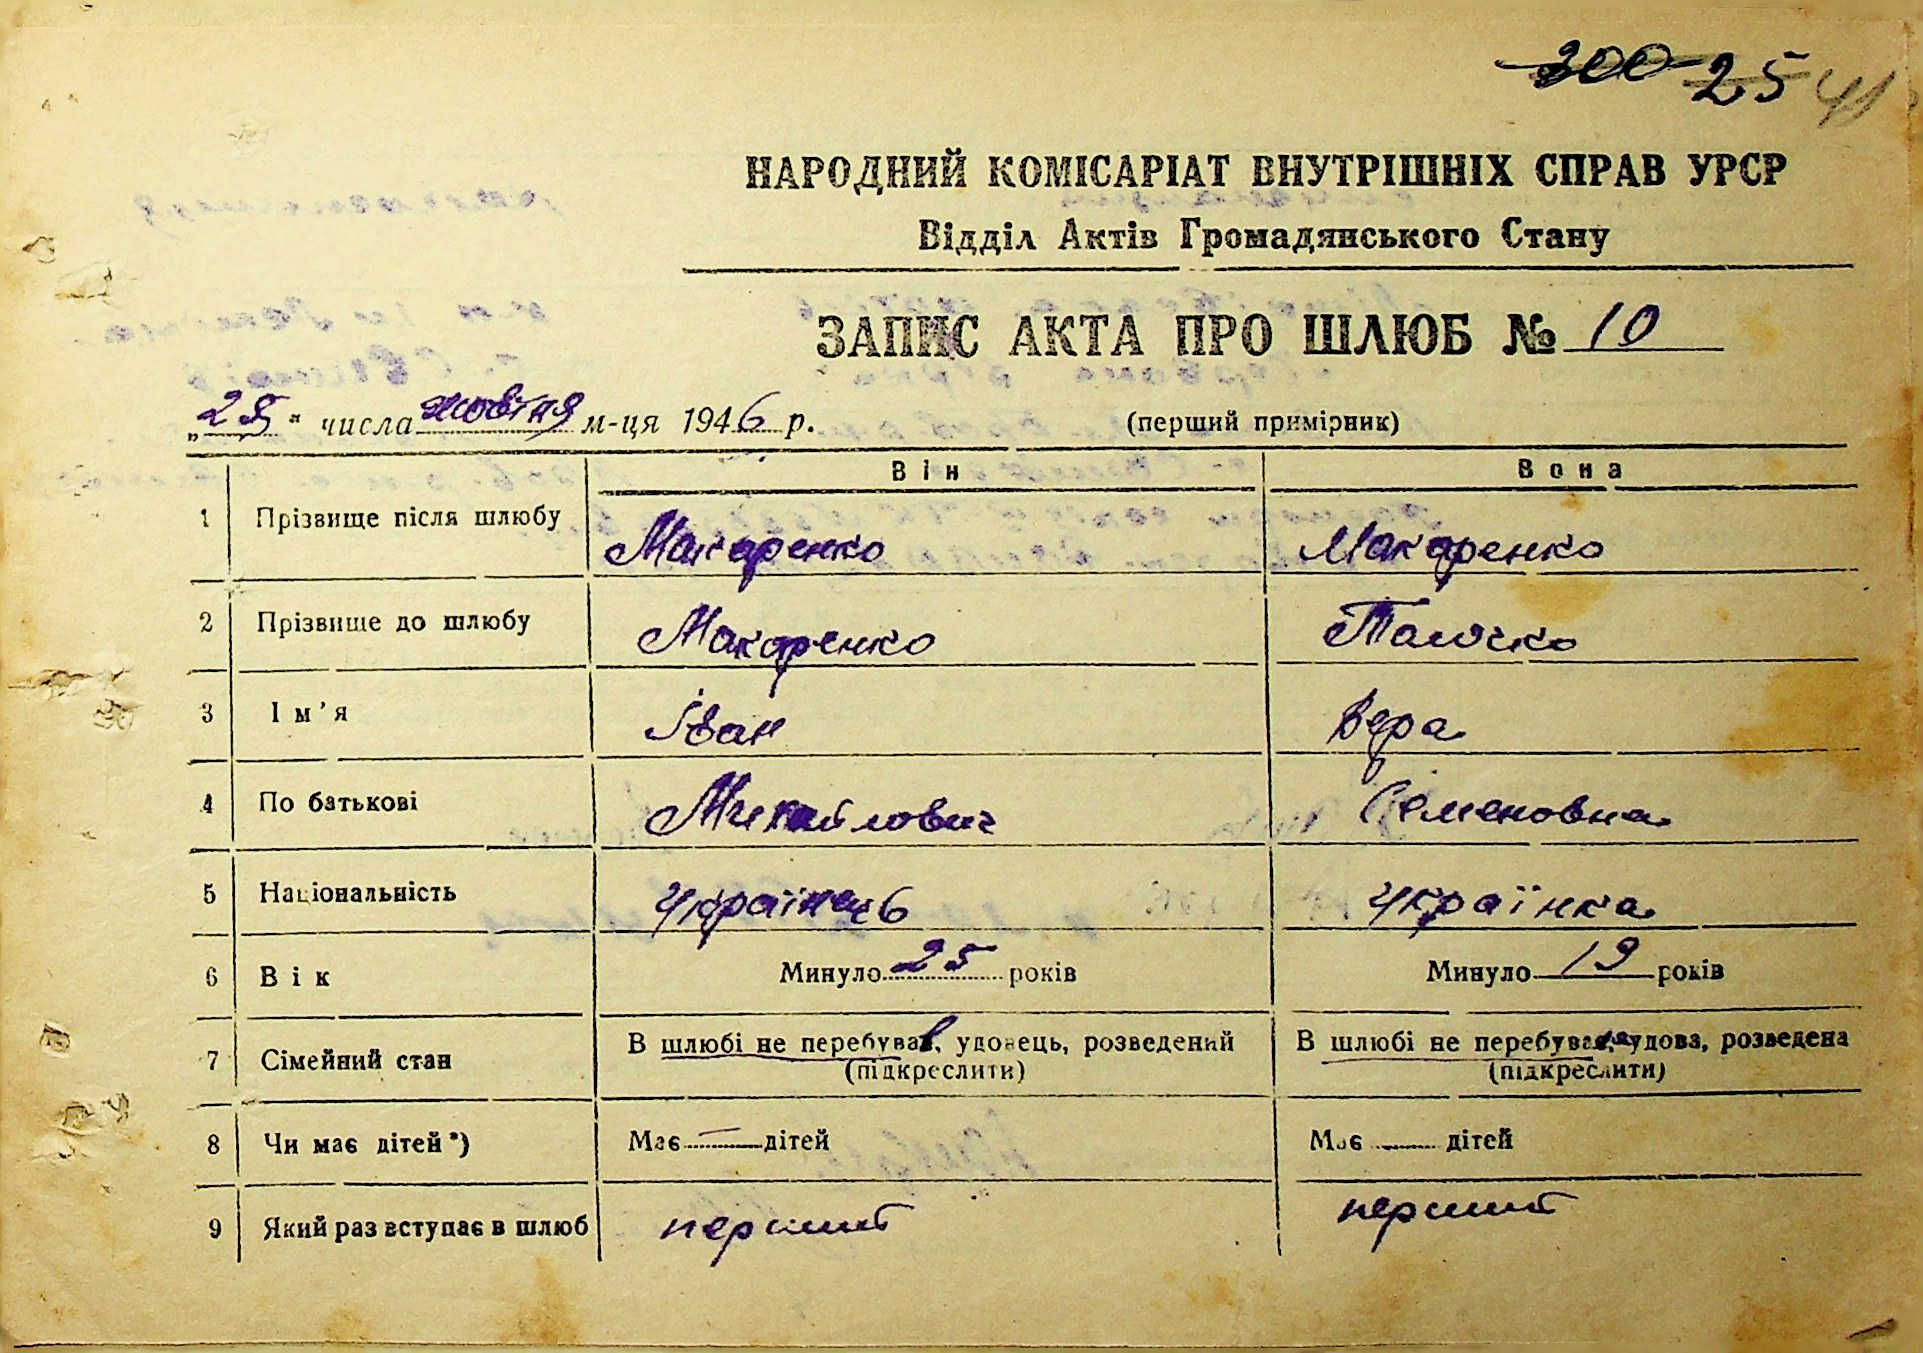 300 25 41
НАРОДНИЙ КОМІСАРІАТ ВНУТРІШНІХ СПРАВ УРСР
Відділ Актів Громадянського Стану
ЗАПИС АКТА ПРО ШЛЮБ № 10
„25" числа жовтня м-ця 1946 р. (перший примірник)
Він Вона
1 Прізвище після шлюбу Макаренко Макаренко
2 Прізвище до шлюбу Макаренко
3 Ім'я Іван Вера
4 По батькові Михайлович Семеновна
5 Національність Українець Українка
6 Вік Минуло 25 років Минуло 19 років
7 Сімейний стан В шлюбі не перебував, удовець, розведений В шлюбі не перебувала, удова, розведена
(підкреслити) (підкреслити)
8 Чи має дітей*) Має — дітей Має — дітей
9 Який раз вступає в шлюб перший перший